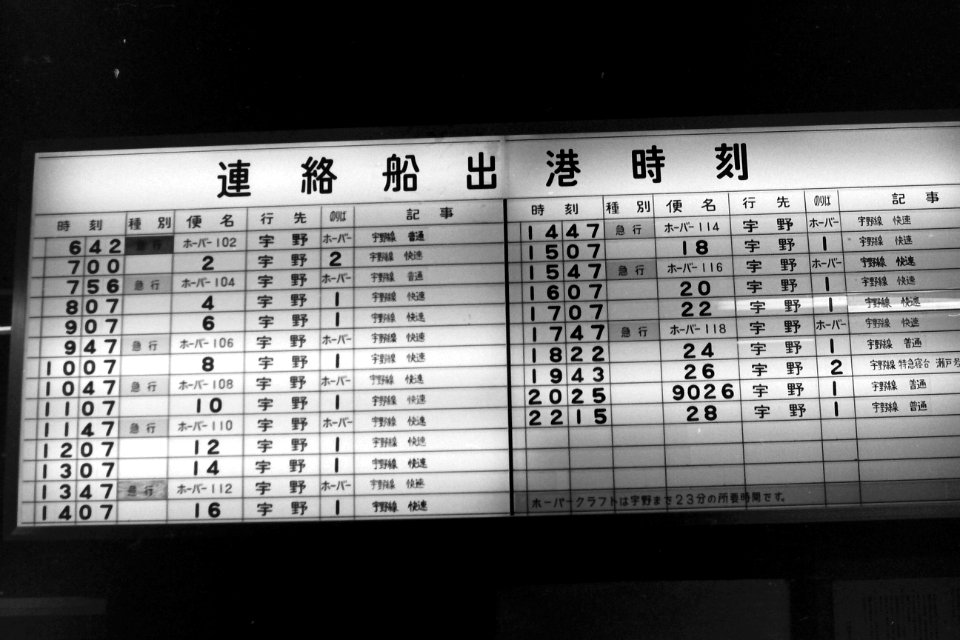 連絡船出港時刻
時刻 種別 便名 行先 のりば 記事
642 急行 ホーバー102 宇野 ホーバー 宇野線 普通
700 2 宇野 2 宇野線 快速
756 急行 ホーバー104 宇野 ホーバー 宇野線 普通
807 4 宇野 1 宇野線 快速
907 6 宇野 1 宇野線 快速
947 急行 ホーバー106 宇野 ホーバー 宇野線 快速
1007 8 宇野 1 宇野線 快速
1047 急行 ホーバー108 宇野 ホーバー 宇野線 快速
1107 10 宇野 1 宇野線 快速
1147 急行 ホーバー110 宇野 ホーバー 宇野線 快速
1207 12 宇野 1 宇野線 快速
1307 14 宇野 1 宇野線 快速
1347 急行 ホーバー112 宇野 ホーバー 宇野線 快速
1407 16 宇野 1 宇野線 快速
時刻 種別 便名 行先 のりば 記事
1447 急行 ホーバー114 宇野 ホーバー 宇野線 快速
1507 18 宇野 1 宇野線 快速
1547 急行 ホーバー116 宇野 ホーバー 宇野線 快速
1607 20 宇野 1 宇野線 快速
1707 22 宇野 1 宇野線 快速
1747 急行 ホーバー118 宇野 ホーバー 宇野線 快速
1822 24 宇野 1 宇野線 普通
1943 26 宇野 2 宇野線 特急寝台 瀬戸
2025 9026 宇野 1 宇野線 普通
2215 28 宇野 1 宇野線 普通
ホーバークラフトは宇野まで23分の所要時間です。